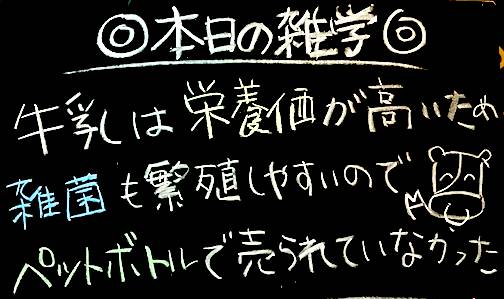 ◎本日の雑学◎
牛乳は栄養価が高いため
雑菌も繁殖しやすいので
ペットボトルで売られていなかった